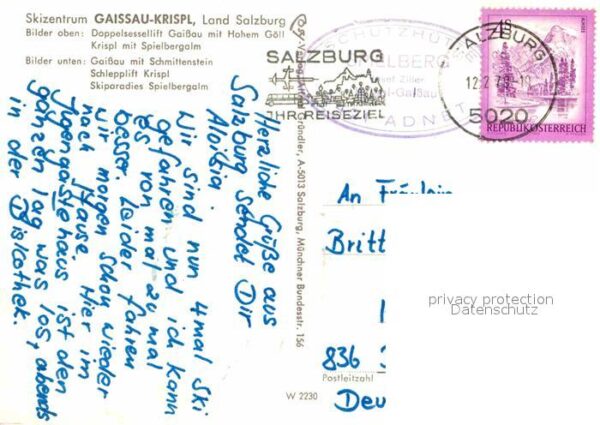 Skizentrum GAISSAU-KRISPL, Land Salzburg
Bilder oben: Doppelsessellift Gaißau mit Hohem Göll
Krispl mit Spielbergalm
Bilder unten: Gaißau mit Schmittenstein
Schlepplift Krispl
Skiparadies Spielbergalm
Herzliche Grüße aus
Salzburg sendet Dir
Aloisia
Wir sind nun 4mal Ski
gefahren und ich kann
es von mal zu mal
besser. Leider fahren
wir morgen schon wieder
nach Hause. Hier im
Jugengästehaus ist den
ganzen Tag was los, abends
in der Diskothek.
Gründler, A-5013 Salzburg, Münchner Bundesstr. 156
SALZBURG
IHR REISEZIEL
SCHUTZHÜT
LBERG
Ziller
Gaißau
ADNET
SALZBURG
12.2.79
5020
4S
REPUBLIK ÖSTERREICH
An Fräulein
Britt
836
Postleitzahl
Deu
W 2230
privacy protection
Datenschutz